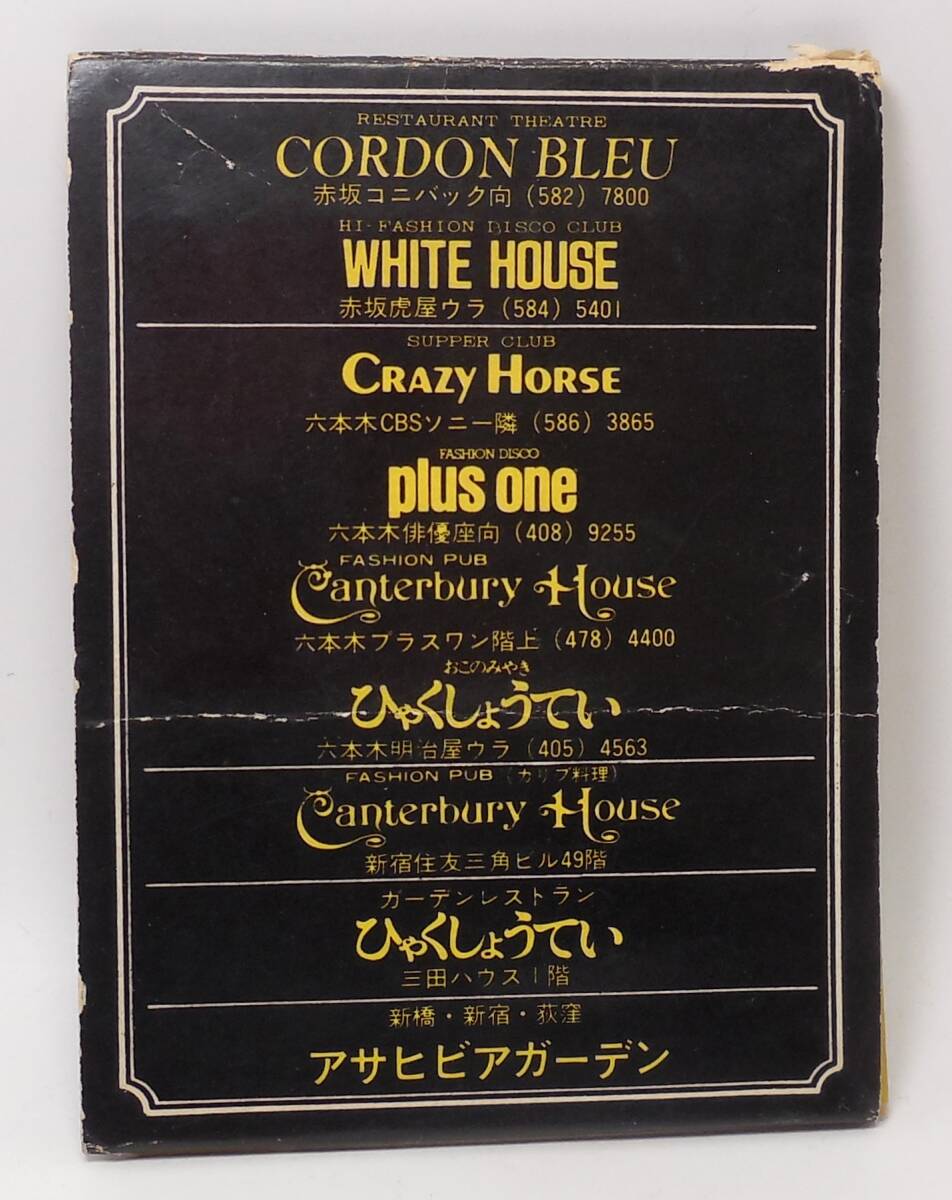 RESTAURANT THEATRE
CORDON BLEU
赤坂コニバック向 (582) 7800
HI-FASHION DISCO CLUB
WHITE HOUSE
赤坂虎屋ウラ (584) 5401
SUPPER CLUB
CRAZY HORSE
六本木CBSソニー隣 (586) 3865
FASHION DISCO
plus one
六本木俳優座向 (408) 9255
FASHION PUB
Canterbury House
六本木プラスワン階上 (478) 4400
おこのみやき
ひゃくしょうてい
六本木明治屋ウラ (405) 4563
FASHION PUB (カリブ料理)
Canterbury House
新宿住友三角ビル49階
ガーデンレストラン
ひゃくしょうてい
三田ハウス1階
新橋・新宿・荻窪
アサヒビアガーデン